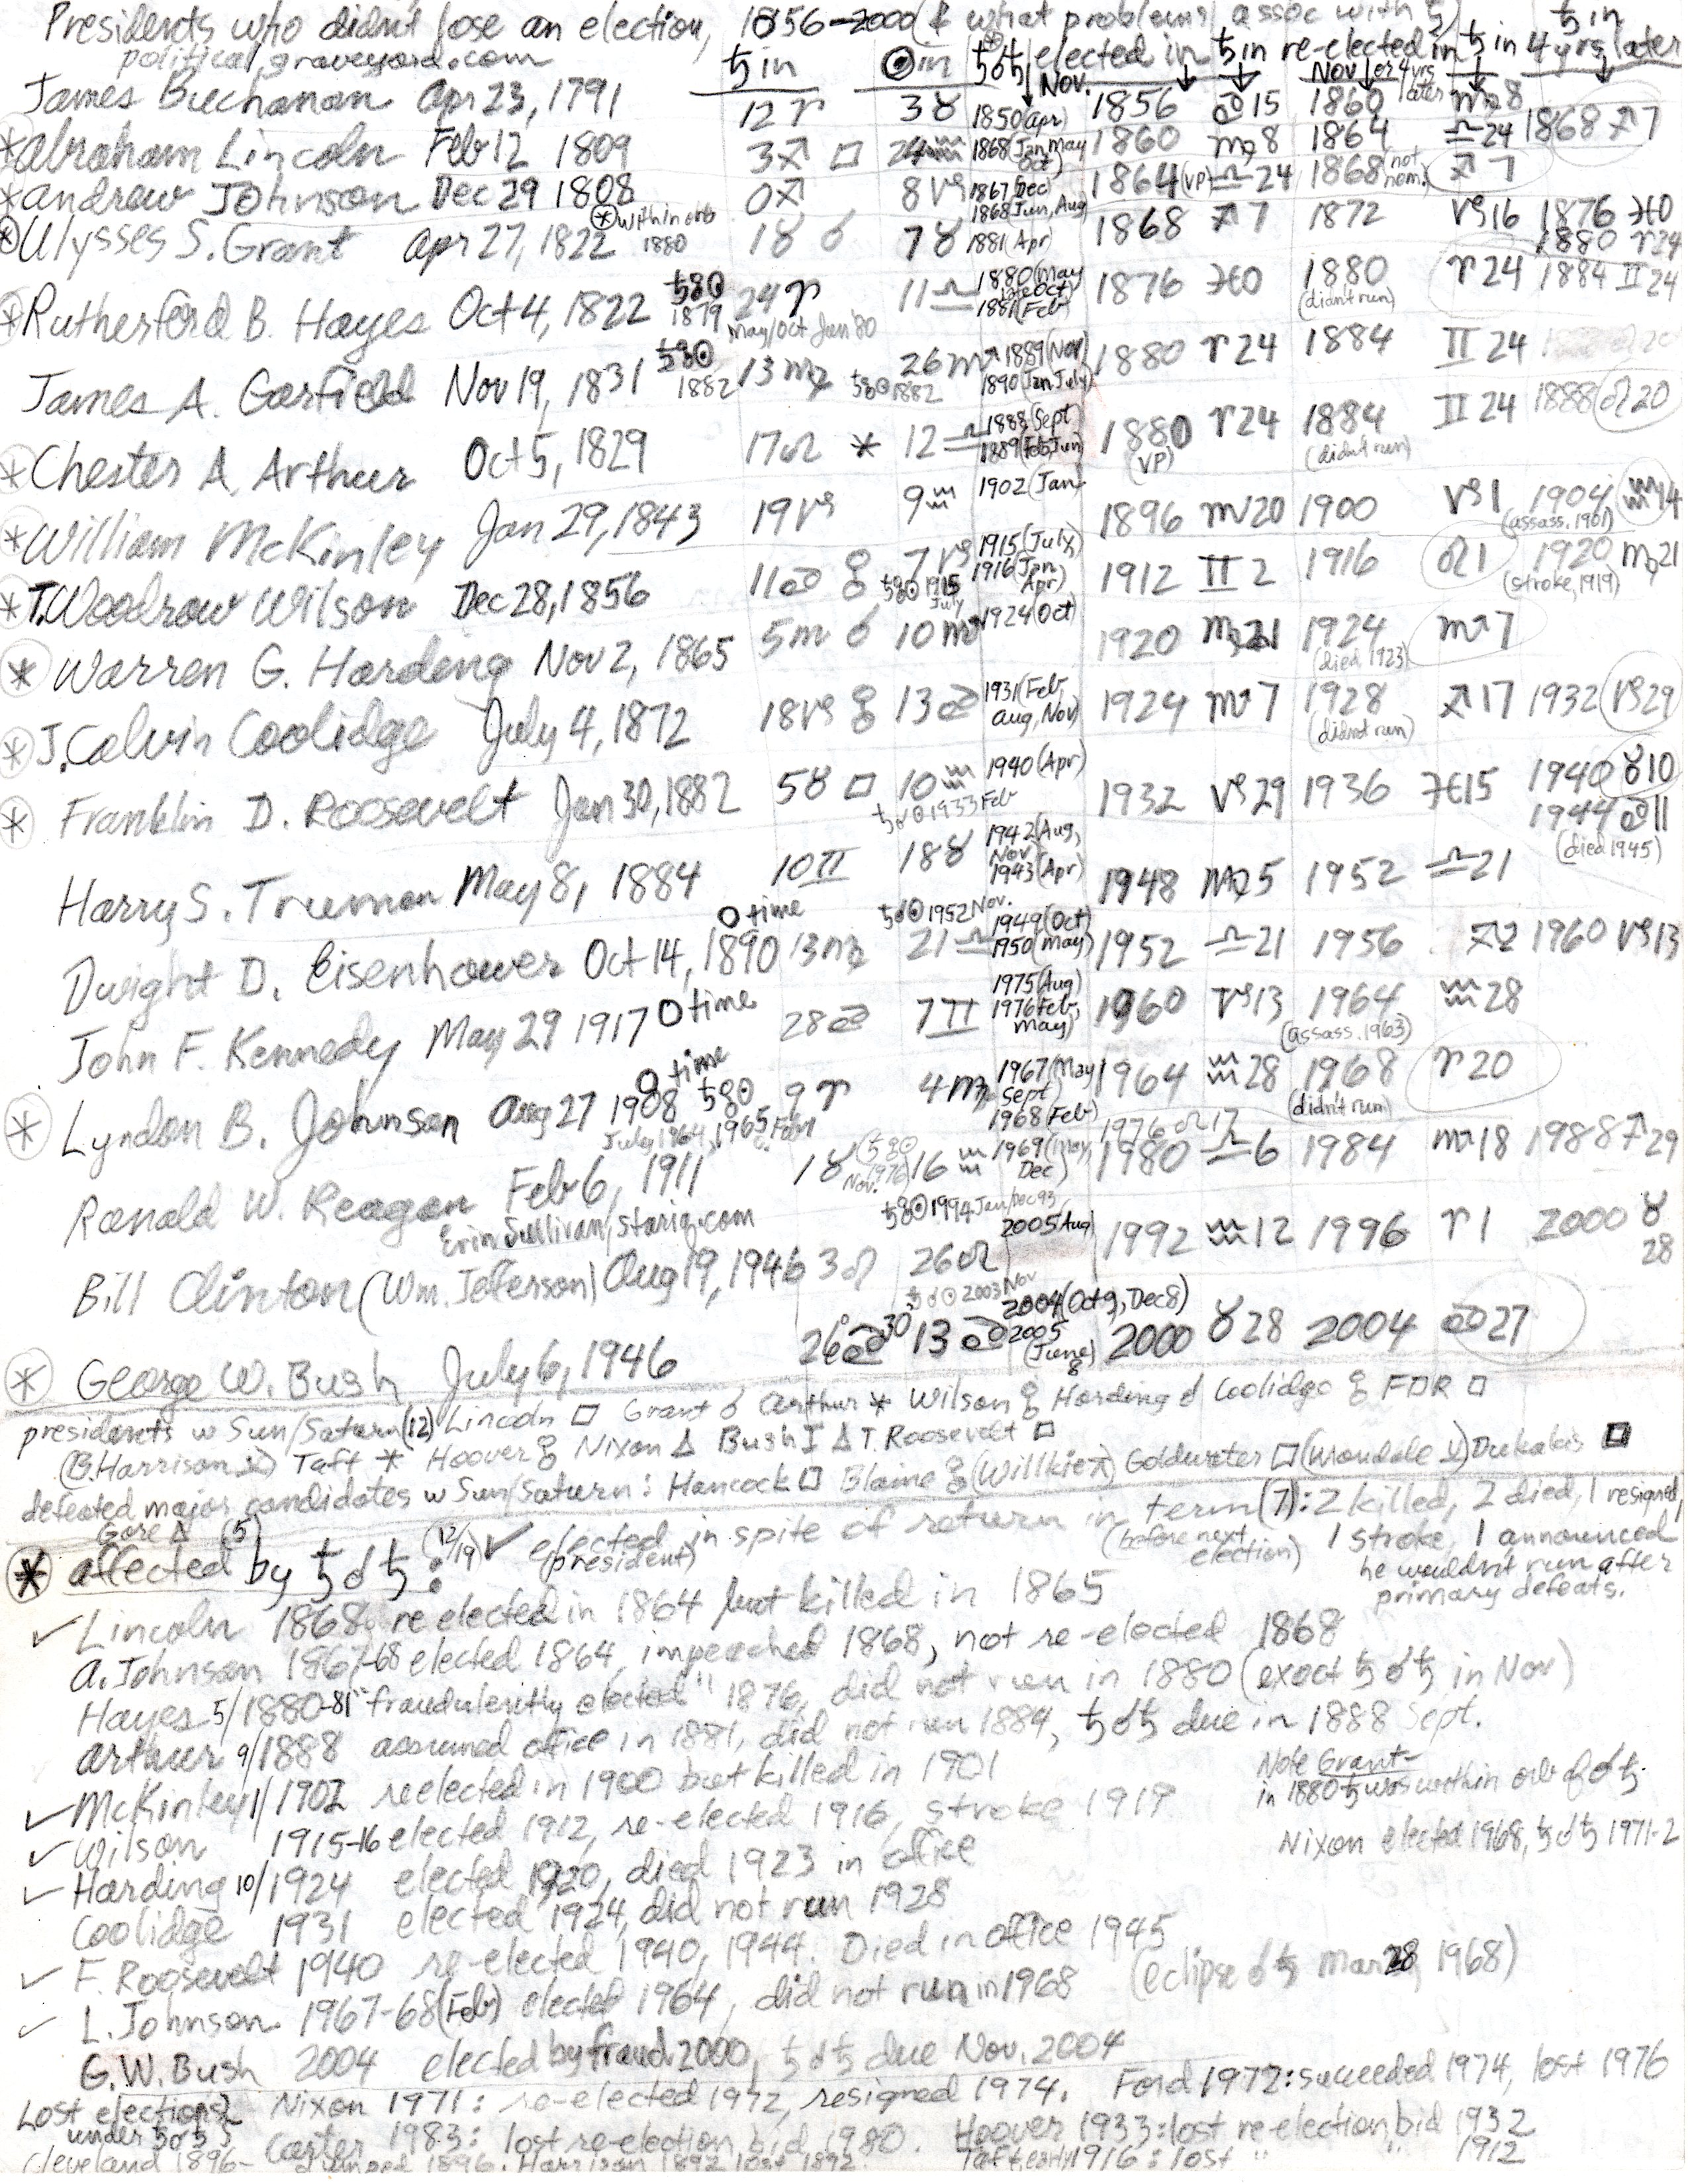 Presidents who didn't lose an election, 1856-2000 (& what problems assoc with ♄)
political graveyard.com
♄ in ☉ in ♄☌♄ elected in ♄ in re-elected in ♄ in 4 yrs later ♄ in
Nov. Nov or 4 yrs later
James Buchanan Apr 23, 1791 12♈ 3♉ 1850 (Apr) 1856 ♋15 1860 ♍8
*Abraham Lincoln Feb 12 1809 3♐ □ 24♒ 1868 (Jan, May Oct) 1860 ♍8 1864 ♎24 1868 ♐7
*Andrew Johnson Dec 29 1808 0♐ 8♑ 1867 (Dec) 1868 Jun, Aug 1864 (VP) ♎24 1868 (not nom.) ♐7
*Ulysses S. Grant Apr 27, 1822 *within orb 1880 1♉ ☌ 7♉ 1881 (Apr) 1868 ♐7 1872 ♑16 1876 ♓0
1880 ♈24
*Rutherford B. Hayes Oct 4, 1822 ♄☍☉ 1879 May/Oct Jan '80 24♈ 11♎ 1880 (May Oct) 1881 (Feb) 1876 ♓0 1880 (didn't run) ♈24 1884 ♊24
James A. Garfield Nov 19, 1831 ♄☍☉ 1882 13♍ ♄☍☉ 1882 26♏ 1889 (Nov) 1890 (Jan July) 1880 ♈24 1884 ♊24
*Chester A. Arthur Oct 5, 1829 17♌ ⚹ 12♎ 1888 (Sept 1889 (Feb, Jun) 1880 (VP) ♈24 1884 (didn't run) ♊24 1888 ♌20
*William McKinley Jan 29, 1843 19♑ 9♒ 1902 (Jan 1896 ♏20 1900 ♑1 1904 (assass. 1901) ♒14
*T. Woodrow Wilson Dec 28, 1856 11♋ ☍ 7♑ ♄☍☉ 1915 July 1915 (July) 1916 (Jan Apr) 1912 ♊2 1916 ♌1 1920 (stroke, 1919) ♍21
* Warren G. Harding Nov 2, 1865 5♏ ☌ 10♏ 1924 (Oct) 1920 ♍21 1924 (died 1923) ♏7
* J. Calvin Coolidge July 4, 1872 18♑ ☍ 13♋ 1931 (Feb, Aug, Nov) 1924 ♏7 1928 (didn't run) ♐17 1932 ♑29
* Franklin D. Roosevelt Jan 30, 1882 5♉ □ 10♒ ♄☌☉ 1933 Feb 1940 (Apr) 1932 ♑29 1936 ♓15 1940 ♉10
1944 ♋11 (died 1945)
Harry S. Truman May 8, 1884 10♊ 18♉ 1942 (Aug, Nov) 1943 (Apr) 1948 ♍5 1952 ♎21
Dwight D. Eisenhower Oct 14, 1890 0 time 13♍ ♄☌☉ 1952 Nov. 21♎ 1949 (Oct) 1950 (May) 1952 ♎21 1956 ♐2 1960 ♑13
John F. Kennedy May 29 1917 0 time 28♋ 7♊ 1975 (Aug) 1976 Feb, May) 1960 ♑13 1964 (assass. 1963) ♒28
* Lyndon B. Johnson Aug 27 1908 0 time ♄☍☉ July 1964, 1965 9♈ 4♍ 1967 (May Sept) 1968 (Feb) 1964 ♒28 1968 (didn't run) ♈20
1976 ♌17
Ronald W. Reagan Feb 6, 1911 1♉ (♄☍☉ Nov. 1976) 16♒ 1969 (May, Dec) 1980 ♎6 1984 ♏18 1988 ♐29
Erin Sullivan/stariq.com
♄☍☉ 1994 Jan/Dec 93
Bill Clinton (Wm. Jefferson) Aug 19, 1946 3♌ 26♌ 2005 Aug 1992 ♒12 1996 ♈1 2000 ♉28
♄☌☉ 2003 Nov
* George W. Bush July 6, 1946 26°♋30' 13♋ 2004 (Oct 9, Dec 8) 2005 (June 8) 2000 ♉28 2004 ♋27
presidents w Sun/Saturn (12) Lincoln □ Grant ☌ Arthur ⚹ Wilson ☍ Harding ☌ Coolidge ☍ FDR □
(B. Harrison ⚻) Taft ⚹ Hoover ☍ Nixon △ Bush I △ T. Roosevelt □
defeated major candidates w Sun/Saturn: Hancock □ Blaine ☍ (Willkie ⚻) Goldwater □ (Mondale) Dukakis □
Gore △ (5)
* affected by ♄☌♄: (12/19) ✓ elected (president) in spite of return in term (7): 2 killed, 2 died, 1 resigned,
(before next election) 1 stroke, 1 announced
he wouldn't run after
primary defeats.
✓ Lincoln 1868 re elected in 1864 but killed in 1865
A. Johnson 1867-68 elected 1864, impeached 1868, not re-elected 1868
Hayes 5/1880-81 "fraudulently elected" 1876, did not run in 1880 (exact ♄☌♄ in Nov)
Arthur 9/1888 assumed office in 1881, did not run 1884, ♄☌♄ due in 1888 Sept.
✓ McKinley 1/1902 reelected in 1900 but killed in 1901
Note Grant-
in 1880 ♄ was within orb of ☌♄
✓ Wilson 1915-16 elected 1912, re-elected 1916, stroke 1919
Nixon elected 1968, ♄☌♄ 1971-2
✓ Harding 10/1924 elected 1920, died 1923 in office
Coolidge 1931 elected 1924, did not run 1928
✓ F. Roosevelt 1940 re-elected 1940, 1944. Died in office 1945
✓ L. Johnson 1967-68 (Feb) elected 1964, did not run in 1968 (eclipse ☌♄ Mar 28, 1968)
G.W. Bush 2004 elected by fraud 2000, ♄☌♄ due Nov. 2004
Lost elections under ♄☌♄ } Nixon 1971: re-elected 1972, resigned 1974. Ford 1972: succeeded 1974, lost 1976
Carter 1983: lost re-election bid 1980. Hoover 1933: lost re-election bid 1932
Cleveland 1896- dumped 1896. Harrison 1892 lost 1892. Taft, early 1916: lost " " 1912